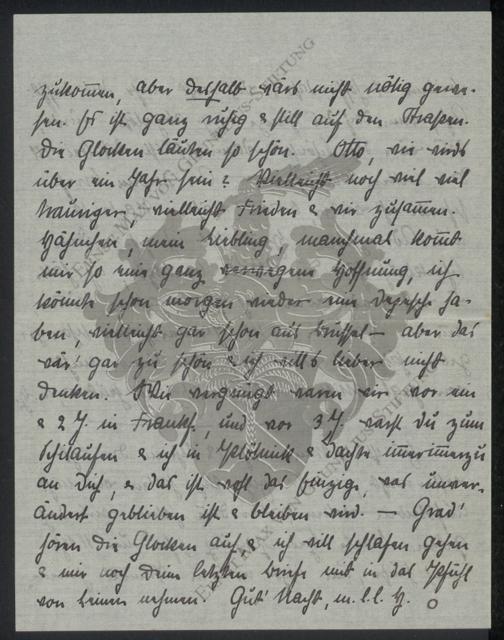 zukommen, aber deshalb wärs nicht nötig gewe-
sen. Es ist ganz ruhig & still auf den Strassen.
Die Glocken läuten so schön. Otto, wie wirds
über ein Jahr sein? Vielleicht noch viel viel
trauriger, vielleicht Frieden & wir zusammen.
Häschen, mein Liebling, manchmal kommt
mir so eine ganz verwegene Hoffnung, ich
könnte schon morgen wieder eine Depesche ha-
ben, vielleicht gar schon aus Brüssel – aber das
wär' gar zu schön & ich will's lieber nicht
denken. Wie vergnügt waren wir vor ein
& 2 J. in Frankf., und vor 3 J. warst Du zum
Schilaufen & ich in & dachte immerimmerzu
an Dich, & das ist wohl das Einzige, was unver-
ändert geblieben ist & bleiben wird. – Grad'
hören die Glocken auf & ich will schlafen gehen
& mir noch Deine letzten Briefe mit in das Gefühl
von Deinen nehmen. Gut' Nacht, m. l. l. H.